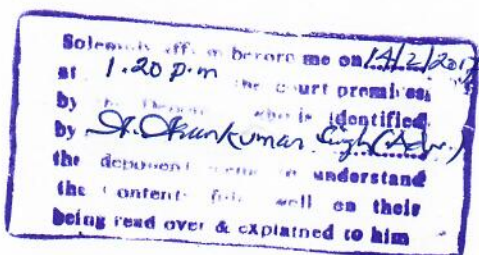 Solemnly affirm before me on 14/2/2017
at 1.20 p.m the court premises
by the Deponent who is identified
by Singh (Adv.)
the deponent seems to understand
the contents fully well on their
being read over & explained to him